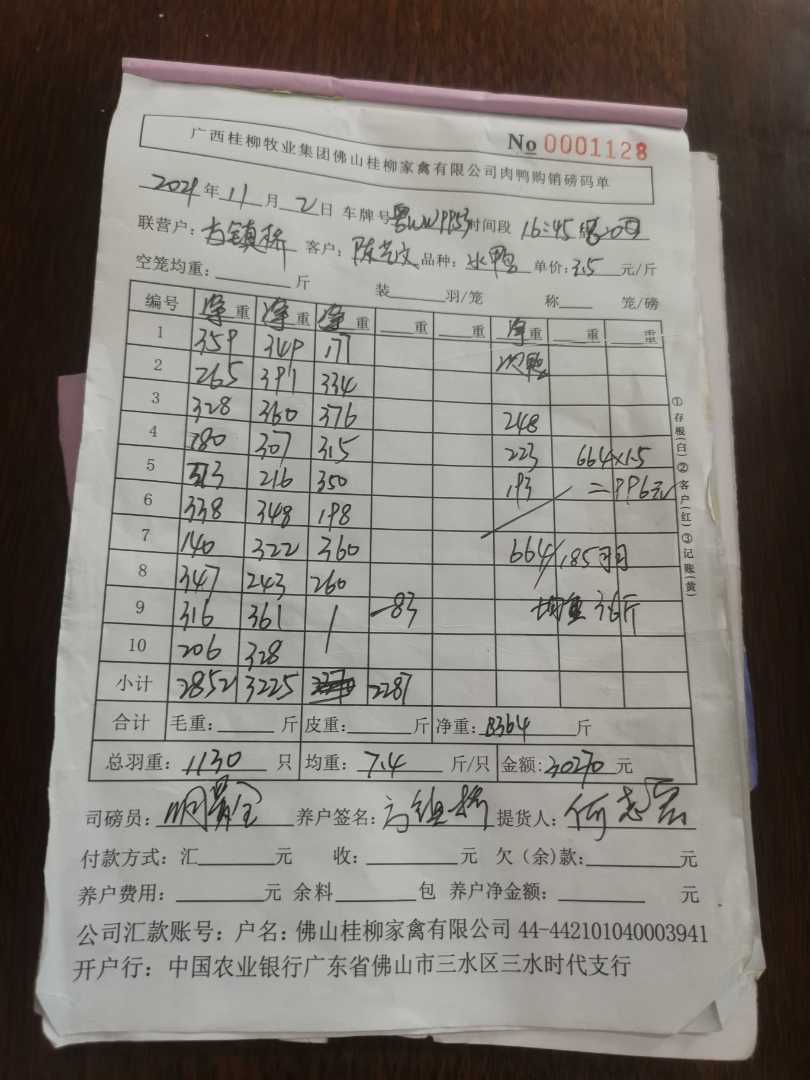 No 0001128
广西桂柳牧业集团佛山桂柳家禽有限公司肉鸭购销磅码单
2021年11月2日 车牌号 时间段 16:45
联营户: 方镇桥 客户: 陈艺文 品种: 水鸭 单价: 3.5 元/斤
空笼均重: 斤 装 羽/笼 称 笼/磅
编号 净重 净重 净重 重 重 净重 重 重
1 359 349 177 次鸭
2 265 391 334
3 328 360 376 248
4 180 307 315 223 664×1.5
5 216 350 193 =996元
6 338 348 198
7 140 322 360 664/185
8 347 243 260
9 316 361 / -83 均重 3.6斤
10 206 328
小计 2852 3225 2287
合计 毛重: 斤 皮重: 斤 净重: 8364 斤
总羽重: 1130 只 均重: 7.4 斤/只 金额: 30270 元
司磅员: 养户签名: 方镇桥 提货人: 何志宏
付款方式: 汇 元 收: 元 欠(余)款: 元
养户费用: 元 余料 包 养户净金额: 元
公司汇款账号: 户名: 佛山桂柳家禽有限公司 44-442101040003941
开户行: 中国农业银行广东省佛山市三水区三水时代支行
①存根(白)②客户(红)③记账(黄)